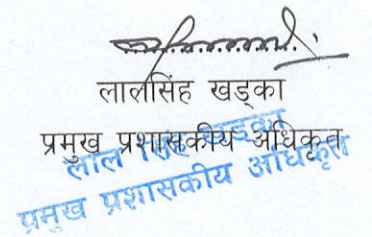 लालसिंह खड्का
प्रमुख प्रशासकीय अधिकृत
लाल सिंह खड्का
प्रमुख प्रशासकीय अधिकृत